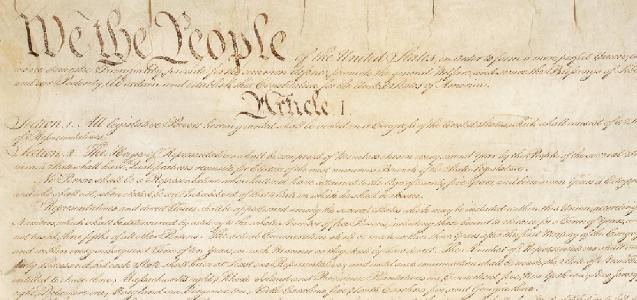 We the People of the United States, in order to form a more perfect Union,
insure domestic Tranquility, provide for the common defence, promote the general Welfare, and secure the Blessings of
and our Posterity, do ordain and establish this Constitution for the United States of America.
Article I.
Section. 1. All legislative Powers herein granted shall be vested in a Congress of the United States, which shall consist of a
of Representatives.
Section. 2. The House of Representatives shall be composed of Members chosen every second Year by the People of the several
in each State shall have the Qualifications requisite for Electors of the most numerous Branch of the State Legislature.
No Person shall be a Representative who shall not have attained to the Age of twenty five Years, and been seven Years a Citizen
and who shall not, when elected, be an Inhabitant of that State in which he shall be chosen.
Representatives and direct Taxes shall be apportioned among the several States which may be included within this Union, according
Numbers, which shall be determined by adding to the whole Number of free Persons, including those bound to Service for a Term of Years,
not taxed, three fifths of all other Persons. The actual Enumeration shall be made within three Years after the first Meeting of the Congress
and within every subsequent Term of ten Years, in such Manner as they shall by Law direct. The Number of Representatives shall not
thirty Thousand, but each State shall have at Least one Representative; and until such enumeration shall be made, the State of New
entitled to chuse three, Massachusetts eight, Rhode Island and Providence Plantations one, Connecticut five, New York six, New Jersey
eight, Delaware one, Maryland six, Virginia ten, North Carolina five, South Carolina five, and Georgia three.